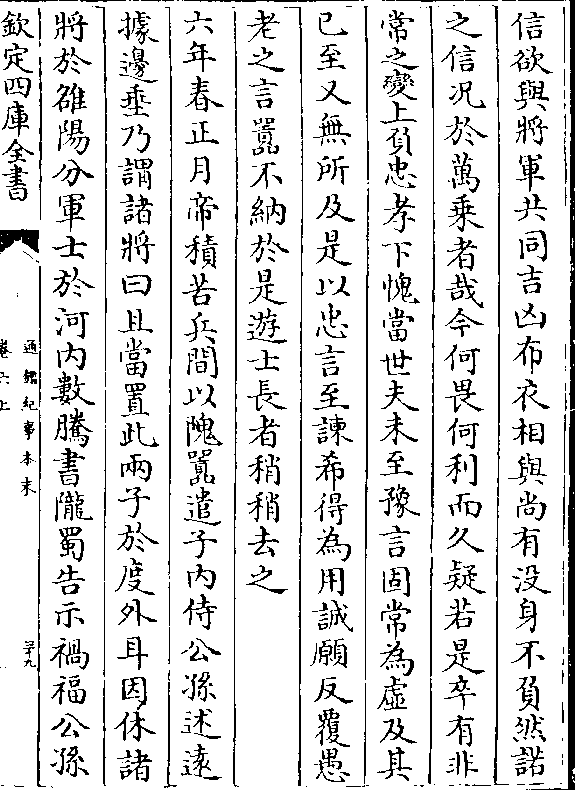 信欲與將軍共同吉凶布衣相與尚有没身不負然諾
之信况於萬乘者哉今何畏何利而久疑若是卒有非
常之變上負忠孝下愧當世夫未至豫言固常為虛及其
已至又無所及是以忠言至諫希得為用誠願反覆愚
老之言囂不納於是遊士長者稍稍去之
六年春正月帝積苦兵間以隗囂遣子内侍公孫述遠
據邊垂乃謂諸將曰且當置此兩子於度外耳因休諸
將於雒陽分軍士於河内數騰書隴蜀告示禍福公孫
欽定四庫全書
通鑑紀事本末
卷六上
二十九